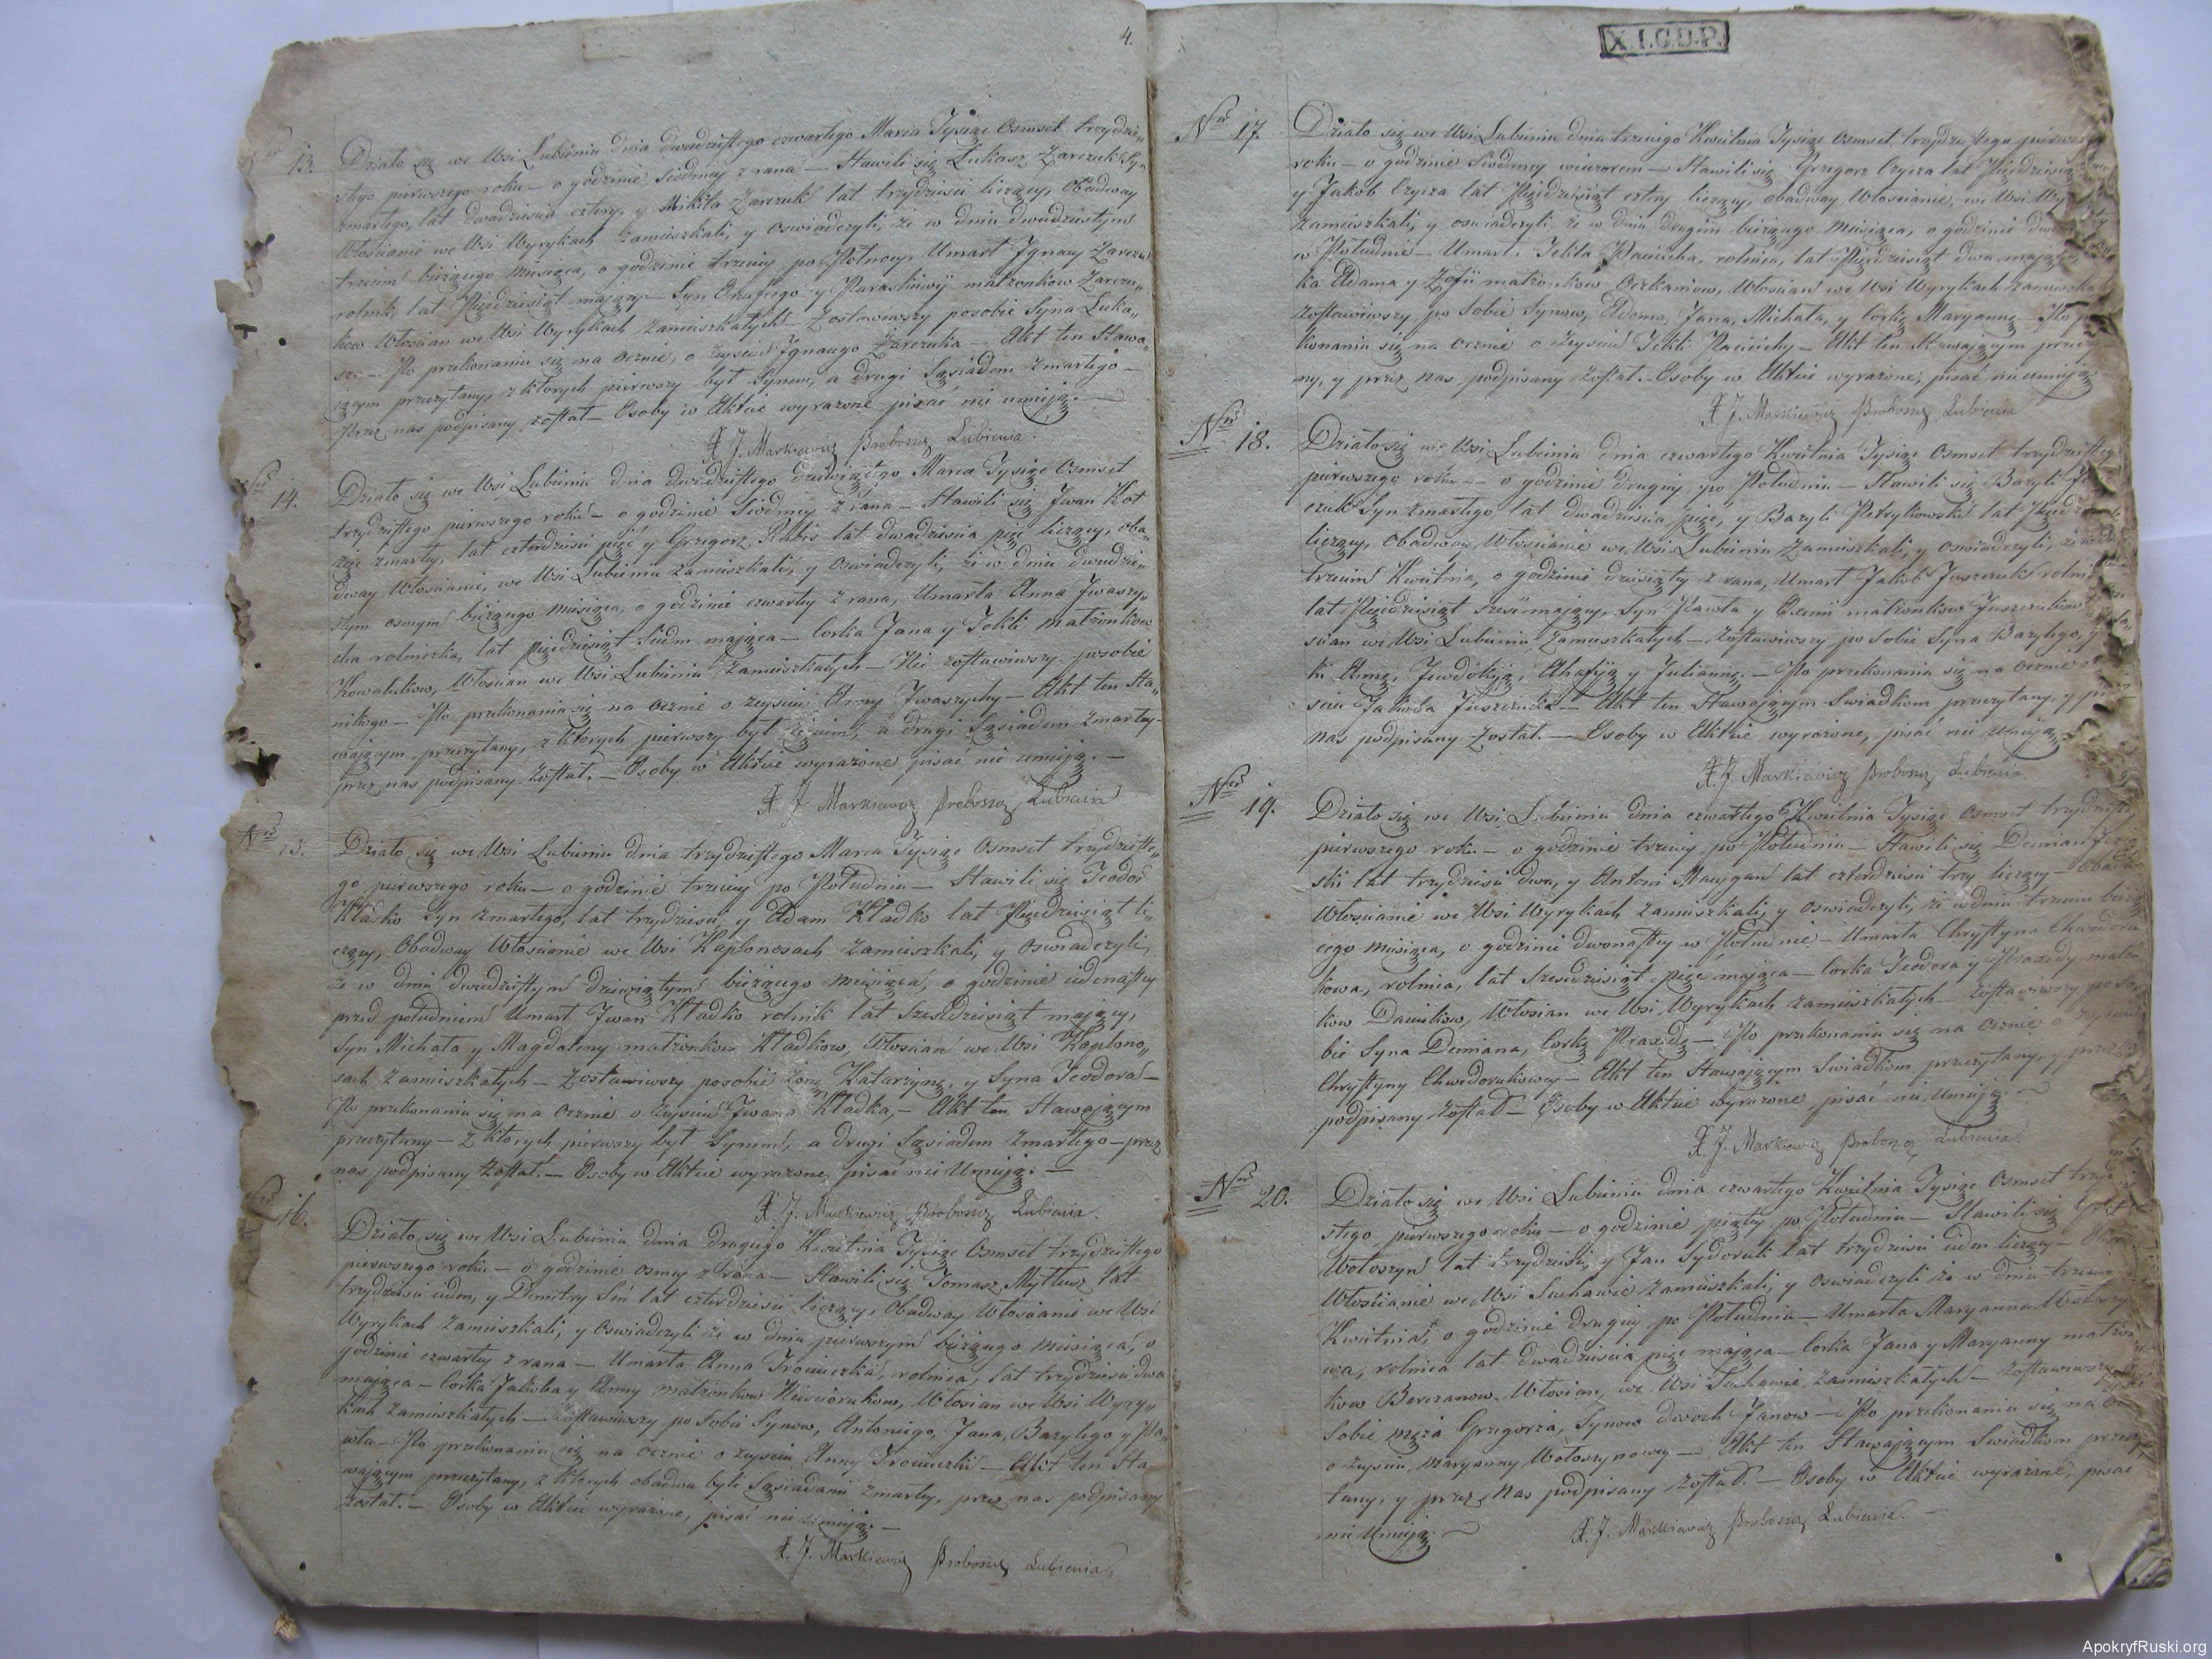 4.
13. Działo się we Wsi Lubieniu dnia dwudziestego czwartego Marca Tysiąc Osmset trzydzie„
stego pierwszego roku — o godzinie siodmey z rana — Stawili się Łukasz Zarczuk Syn
zmarłego, lat dwadzieścia cztery, y Mikita Zarczuk lat trzydzieści liczący, Obadway
Włościanie we Wsi Wyrykach zamieszkali, y oswiadczyli, że w dniu dwudziestym
trzecim bieżącego miesiąca, o godzinie trzeciey po Północy, Umarł Ignacy Zarczuk
rolnik, lat Pięćdziesiąt maiący — Syn y Paraskiewij małżonkow Zarczu„
kow Włościan we Wsi Wyrykach zamieszkałych — Zostawiwszy posobie Syna Łuka„
sza — Po przekonaniu się na ocznie, o zeysciu Ignacego Zarczuka — Akt ten Stawa„
iącym przeczytany, z ktorych pierwszy był Synem, a drugi Sąsiadem zmarłego —
przez nas podpisany został — Osoby w Akcie wyrażone pisać nie umieją. —
X J. Markiewicz Proboszcz Lubienia.
Nro 14. Działo się we Wsi Lubieniu dnia dwudziestego dziewiątego Marca Tysiąc Osmset
trzydziestego pierwszego roku — o godzinie Siodmey z rana — Stawili się Jwan Kot
zięć zmarłey, lat czterdzieści pięć y Grzegorz Kubis lat dwadzieścia pięć liczący, oba„
dway Włościanie, we Wsi Lubieniu zamieszkali, y oswiadczyli, że w dniu dwudzie„
stym osmym bieżącego miesiąca, o godzinie czwartey z rana, Umarła Anna Jwaszy„
cha rolniczka, lat pięćdziesiąt siedm maiąca — Corka Jana y Tekli małżonkow
Kowalukow, Włościan we Wsi Lubieniu zamieszkałych — Nie zostawiwszy posobie
nikogo — Po przekonaniu się na ocznie o zeysciu Anny Jwaszychy — Akt ten Sta„
waiącym przeczytany, z ktorych pierwszy był zięciem, a drugi Sąsiadem zmarłey —
przez nas podpisany został. — Osoby w Akcie wyrażone pisać nie umieją. —
X J. Markiewicz Proboszcz Lubienia
Nro 15. Działo się we Wsi Lubieniu dnia trzydziestego Marca Tysiąc Osmset trzydzieste„
go pierwszego roku — o godzinie trzeciey po Południu — Stawili się Teodor
Kładko Syn zmarłego, lat trzydzieści, y Adam Kładko lat Pięćdziesiąt li„
czący, Obadway Włościanie we Wsi Kaplonosach zamieszkali, y oswiadczyli,
że w dniu dwudziestym dziewiątym bieżącego miesiąca, o godzinie iedenastey
przed południem Umarł Jwan Kładko rolnik lat Sześdziesiąt maiący,
Syn Michała y Magdaleny małżonkow Kładkow, Włościan we Wsi Kaplono„
sach zamieszkałych — Zostawiwszy posobie żonę Katarzynę, y Syna Teodora —
Po przekonaniu się na ocznie o zeysciu Jwana Kładka, — Akt ten Stawaiącym
przeczytany — z ktorych pierwszy był Synem, a drugi Sąsiadem zmarłego — przez
nas podpisany został. — Osoby w Akcie wyrażone, pisać nie Umieją. —
X. J. Markiewicz Proboszcz Lubienia.
Nro 16. Działo się we Wsi Lubieniu dnia drugiego Kwietnia Tysiąc Osmset trzydziestego
pierwszego roku — o godzinie osmey z rana — Stawili się Tomasz lat
trzydzieści ieden, y Dmitry lat czterdzieści liczący, Obadway Włościanie we Wsi
Wyrykach zamieszkali, y oswiadczyli że w dniu pierwszym bieżącego miesiąca, o
godzinie czwartey z rana — Umarła Anna rolnica, lat trzydzieści dwa
maiąca — Corka Jakoba y Anny małżonkow Włościan we Wsi Wyry„
kach zamieszkałych — Zostawiwszy po Sobie Synow, Antoniego, Jana, Bazylego y Pa„
wła — Po przekonaniu się na ocznie o zeysciu Anny — Akt ten Sta„
waiącym przeczytany, z ktorych obadwa byli Sąsiadami zmarłey, przez nas podpisany
został. — Osoby w Akcie wyrażone, pisać nie umieją. —
X. J. Markiewicz Proboszcz Lubienia,
X.I.C.D.P.
Nro 17. Działo się we Wsi Lubieniu dnia trzeciego Kwietnia Tysiąc Osmset trzydziestego
roku — o godzinie Siodmey wieczorem — Stawili się Grzegorz lat Pięćdziesiąt
y Jakob lat Pięćdziesiąt cztery liczący, obadway Włościanie, we Wsi
zamieszkali, y oswiadczyli, że w dniu drugim bieżącego miesiąca, o godzinie
w Południe — Umarł. Tekla rolnica, lat Pięćdziesiąt dwa
ka Adama y Zofii małżonkow Włościan we Wsi Wyrykach
Zostawiwszy po Sobie Synow, Adama, Jana, Michała, y Corkę Maryannę — Po
konaniu się na ocznie o zeysciu Tekli — Akt ten Stawaiącym
ny, y przez nas podpisany został. — Osoby w Akcie wyrażone, pisać nie umieją.
X J. Markiewicz Proboszcz Lubienia
Nro 18. Działo się we Wsi Lubieniu dnia czwartego Kwietnia Tysiąc Osmset
pierwszego roku — o godzinie drugiey po Południu — Stawili się Bazyli
czuk Syn zmarłego lat dwadzieścia pięć, y Bazyli Petrykowski lat
liczący, Obadway Włościanie we Wsi Lubieniu zamieszkali, y oswiadczyli,
trzecim Kwietnia, o godzinie dziesiątey z rana, Umarł Jakób Juszczuk
lat Pięćdziesiąt sześć maiący, Syn Pawła y małżonkow
scian we Wsi Lubieniu zamieszkałych — Zostawiwszy po Sobie Syna Bazylego,
ki Annę, Jewdokiją, Ahafiją y Juliannę. — Po przekonaniu się na ocznie
sciu Jakóba Juszczuka — Akt ten Stawaiącym Swiadkom przeczytany, y
nas podpisany został. — Osoby w Akcie wyrażone, pisać nie Umieją
X. J. Markiewicz Proboszcz Lubienia
Nro 19. Działo się we Wsi Lubieniu dnia czwartego Kwietnia Tysiąc Osmset
pierwszego roku — o godzinie trzeciey po Południu — Stawili się Demian
lat trzydzieści dwa, y Antoni lat czterdzieści trzy liczący —
Włościanie we Wsi Wyrykach zamieszkali, y oswiadczyli, że w dniu trzecim
cego miesiąca, o godzinie dwunastey w Południe — Umarła Chrystyna
kowa, rolnica, lat Sześdziesiąt pięć maiąca — Corka Teodora y Praxedy
kow Włościan we Wsi Wyrykach zamieszkałych — Zostawiwszy po So„
bie Syna Demiana, Corkę Praxedę — Po przekonaniu się na ocznie o
Chrystyny Chwedorukowey — Akt ten Stawaiącym Swiadkom przeczytany, y
podpisany został — Osoby w Akcie wyrażone, pisać nie Umieją. —
X. J. Markiewicz Proboszcz Lubienia.
Nro 20. Działo się we Wsi Lubieniu dnia czwartego Kwietnia Tysiąc Osmset
stego pierwszego roku — o godzinie piątey po Południu — Stawili się
Wołoszyn lat trzydzieści, y Jan Sydoruk lat trzydzieści ieden liczący —
Włościanie we Wsi Suchawie zamieszkali, y oswiadczyli że w dniu
Kwietnia, o godzinie drugiey po Południu — Umarła Maryanna
wa, rolnica lat dwadzieścia pięć maiąca — Corka Jana y Maryanny
kow Włościan, we Wsi Suchawie, zamieszkałych — Zostawiwszy
Sobie męża Grzegorza, Synow dwoch Janow — Po przekonaniu się na
o zeysciu, Maryanny Wołoszynowey — Akt ten Stawaiącym Swiadkom
tany, y przez nas podpisany został. — Osoby w Akcie wyrażone, pisać
nie Umieją. — X. J. Markiewicz Proboszcz Lubienia. —
ApokryfRuski.org